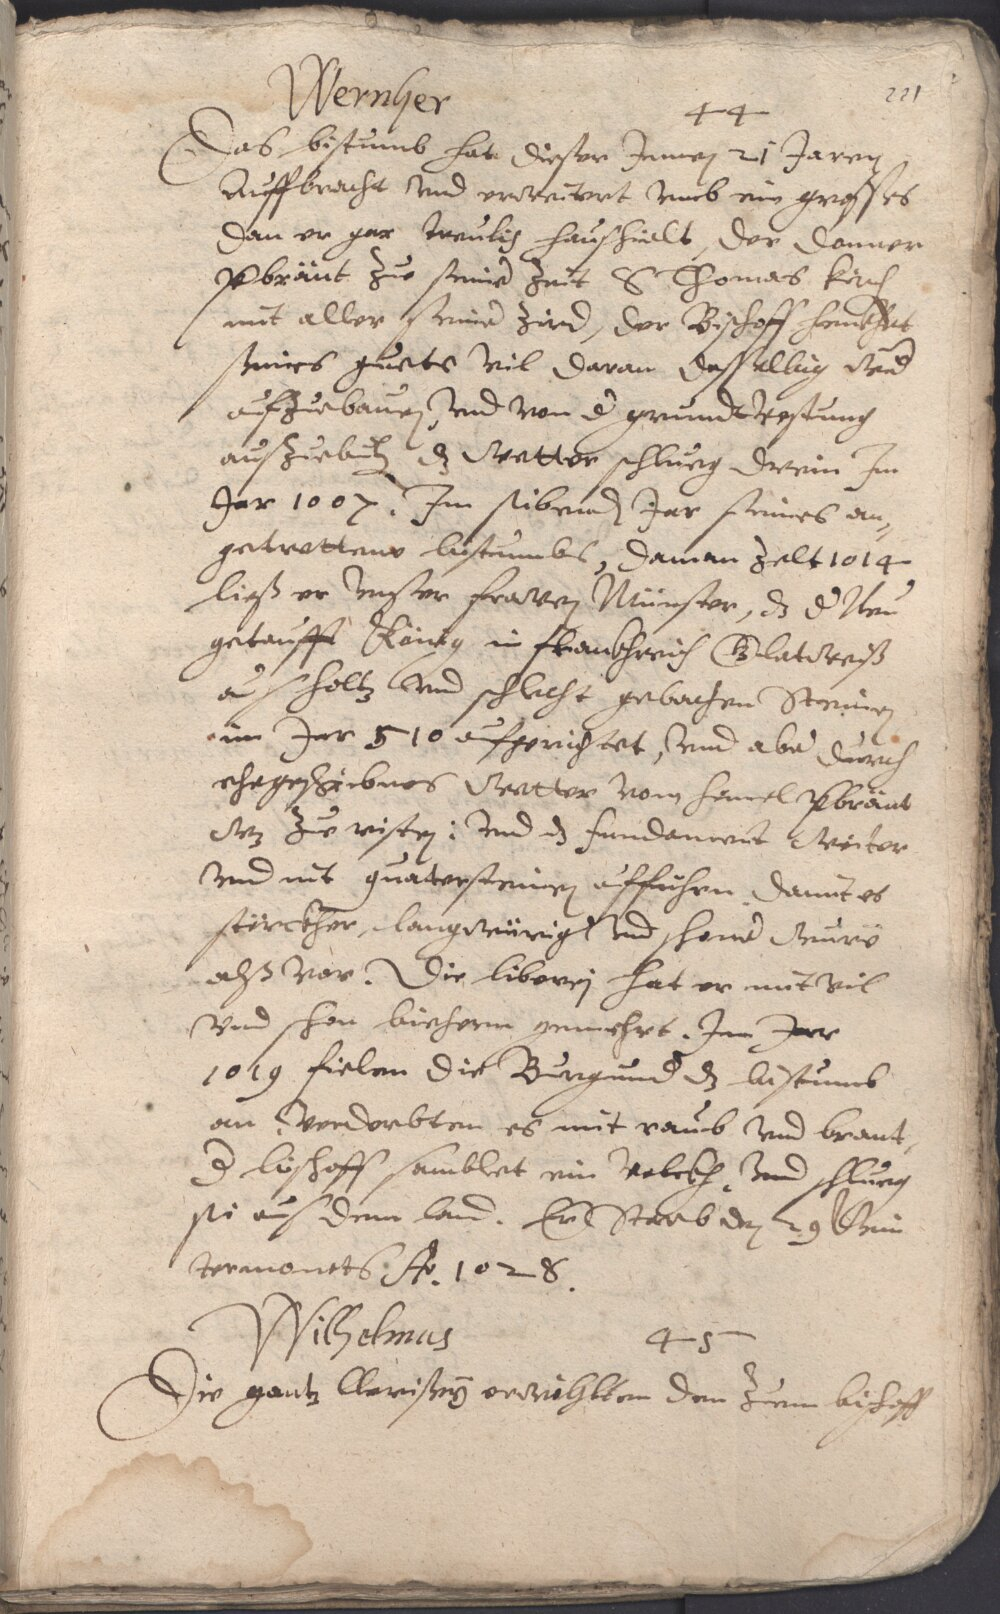 221
Wernher 44
Das bistumb hat dieser Innen 21 Jaren
Auffbracht und erweitert umb ein grosses
dan er gar treulich haushielt, der donner
verbränt zue seiner Zeit S Thomas kirch
mit aller seiner Zierd, der Bischoff henckhet
seines guets vil daran dasselbig wider
aufzuebauen, und von der grundtvestung
auszuebutzen das wetter schlueg drein Im
Jar 1007. Im sibenden Jar seines an-
getrettens bistumbs, da man zelt 1014
ließ er unser frawen Münster, das der Neu
getaufft König in frankhreich Clatoveiß
aus holtz und schlecht gebachen Steinen
im Jar 510 aufgerichtet, und aber durch
ehegeschribnes wetter vom himel verbränt
wz zue risten: und das fundament weiter
und mit quatersteinen aufführen damit es
störckher, langwürig und schöner wurde
alß vor. Die liberej hat er mit vil
und schon büechern gemehrt. Im Jar
1019 fielen die Burgunder das bistumb
an, verderbten es mit raub und brant,
der bischoff samblet ein volckh, und schlueg
sie aus dem land. Er Starb den 29 Wein
termonets Ao. 1028.
Wilhelmus 45
Die gantz Clerisey erwöhlten den zum bischoff